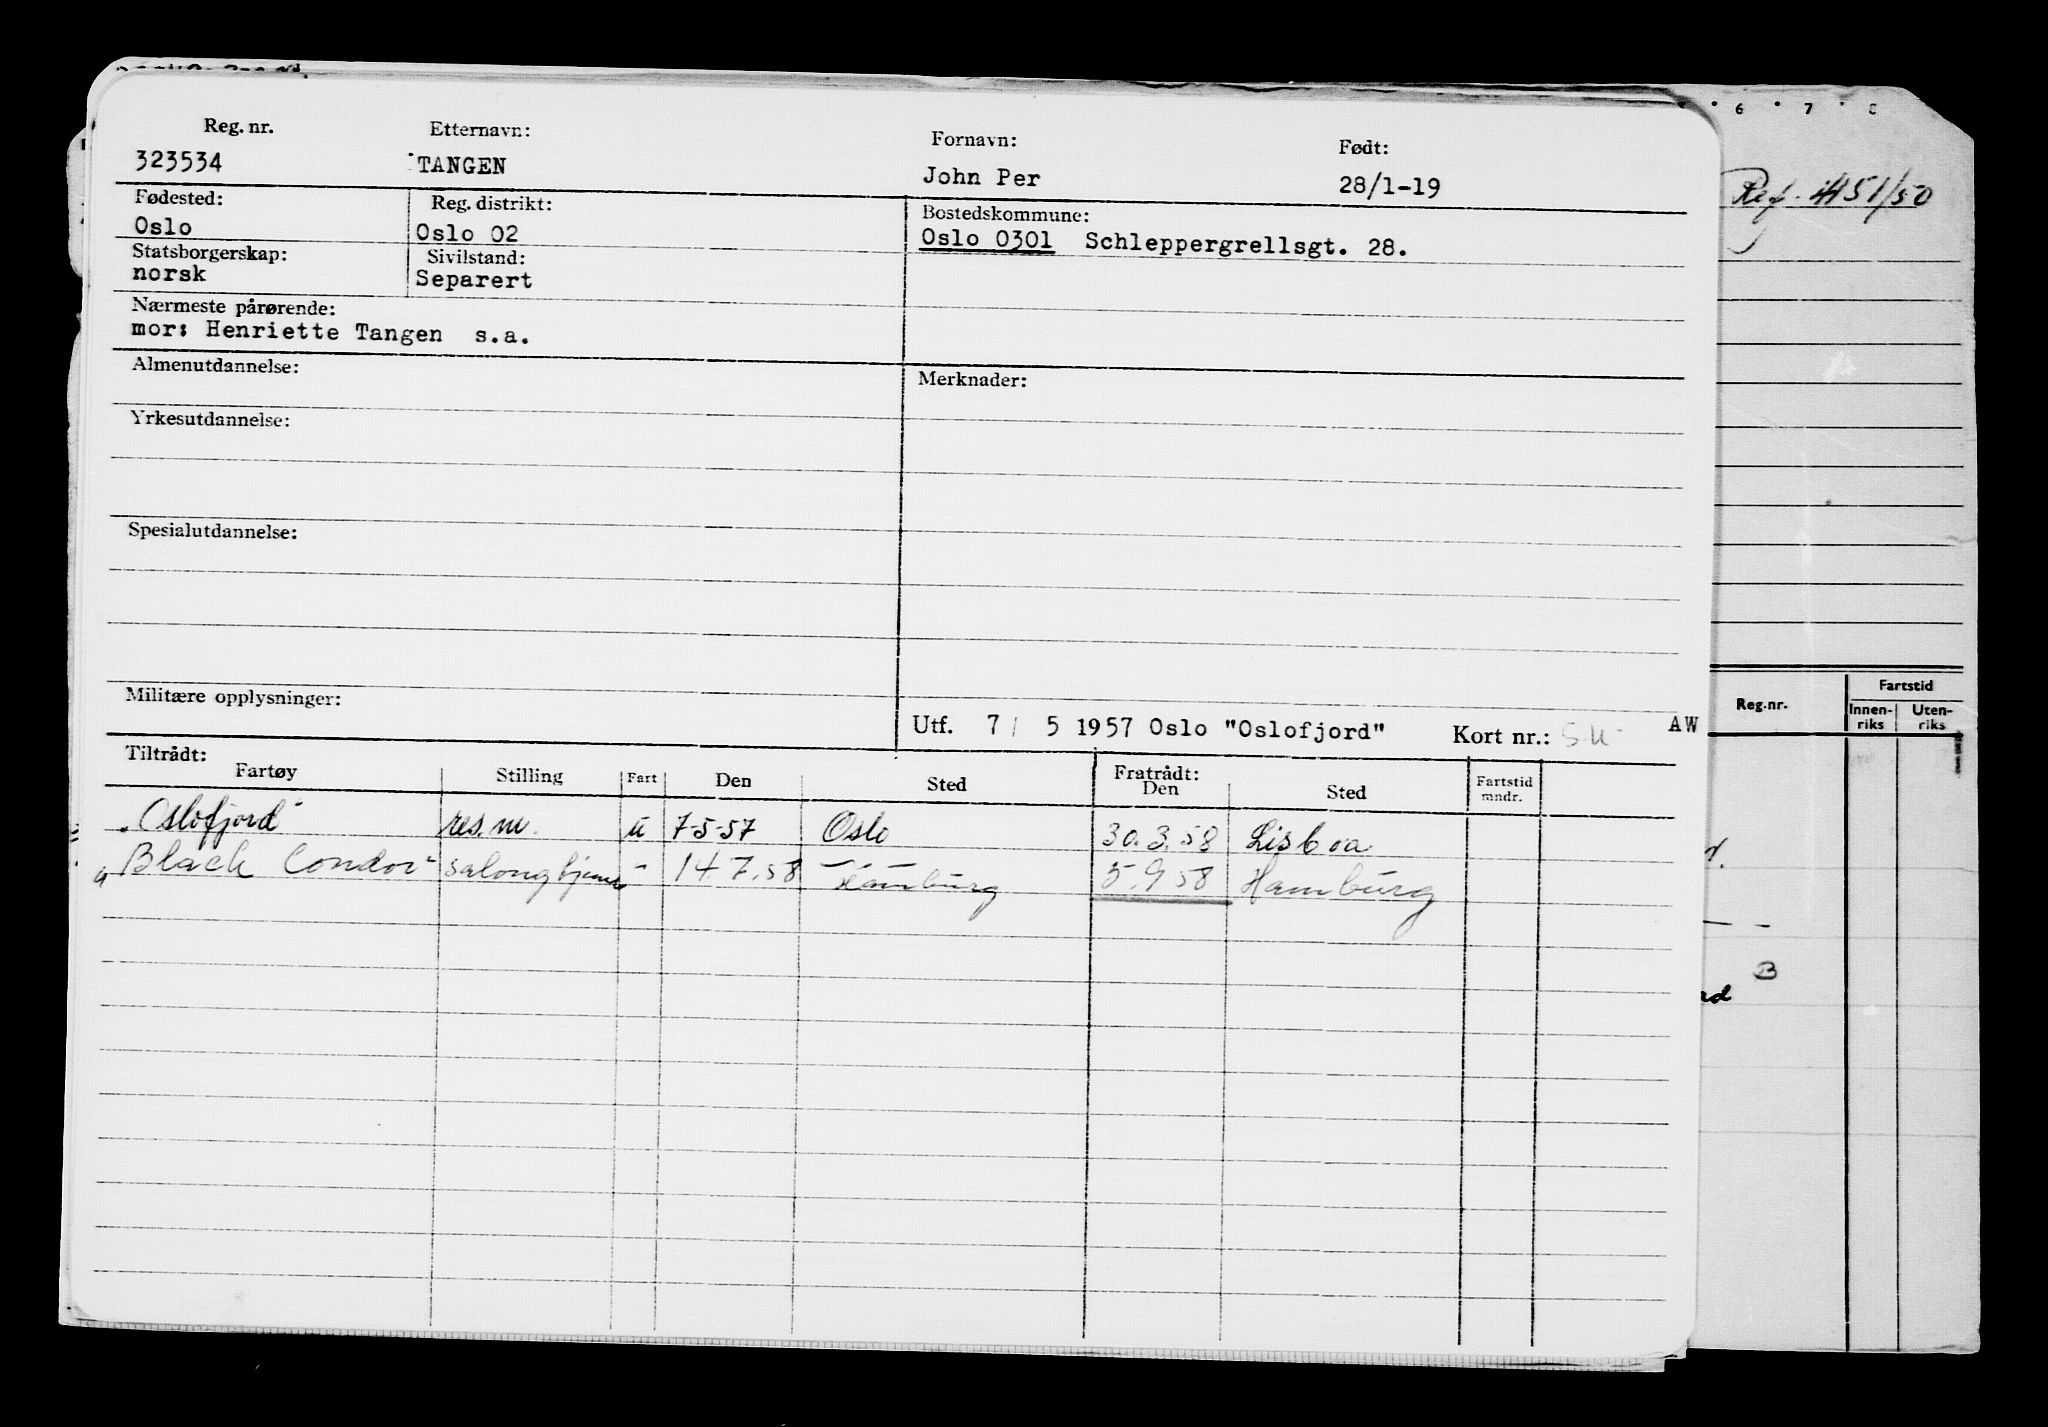 Reg. nr. Etternavn: Fornavn: Født:
323534 TANGEN John Per 28/1-19
Fødested: Reg. distrikt: Bostedskommune:
Oslo Oslo 02 Oslo 0301 Schleppergrellsgt. 28.
Statsborgerskap: Sivilstand:
norsk Separert
Nærmeste pårørende:
mor: Henriette Tangen s.a.
Almenutdannelse: Merknader:
Yrkesutdannelse:
Spesialutdannelse:
Militære opplysninger:
Utf. 7/ 5 1957 Oslo "Oslofjord" Kort nr.: AW
Tiltrådt: Fratrådt:
Fartøy Stilling Fart Den Sted Den Sted Fartstid mndr.
"Oslofjord" res.m. u 7-5-57 Oslo 30.3.58 Lisboa
"Black Condor" salongtjener " 14.7.58 Hamburg 5.9.58 Hamburg
6 7 8
Ref. 4451/50
Reg.nr. Fartstid
Innen-riks Uten-riks
B